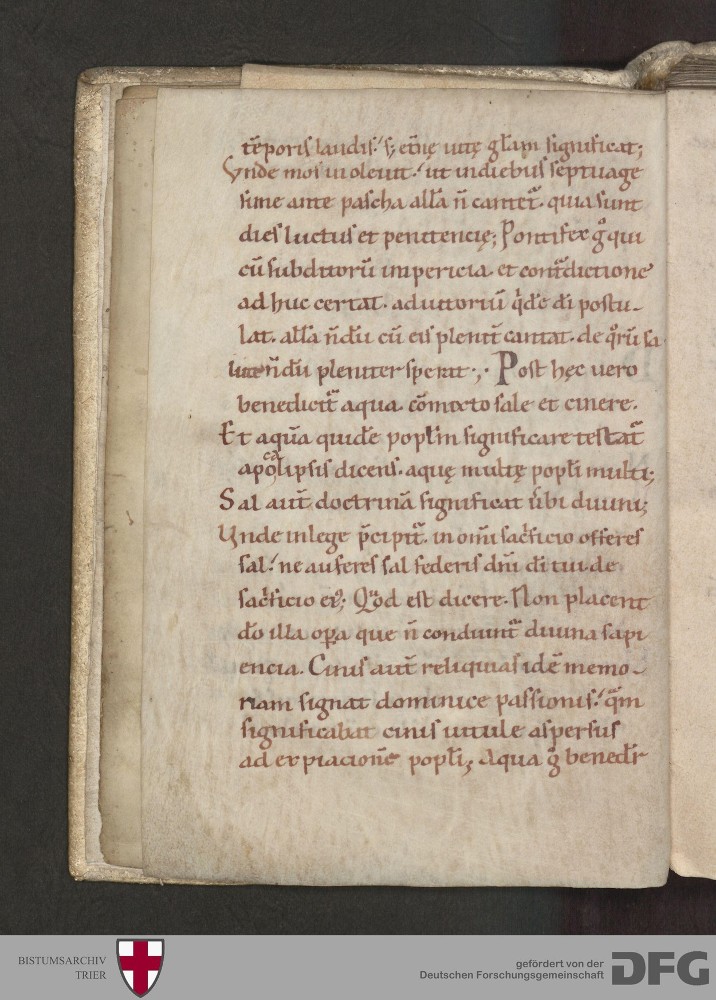 tēporis laudis. s; et̄nę uitę gl̄am significat;
Vnde mos inoleuit. ut in diebus septuage
sime ante pascha allā n̄ cantet᷑. quia sunt
dies luctus et penitencię; Pontifex gͦ qui
cū subditorū impericia. et cont᷑dictione
ad huc certat. adiutoriū q̇de dī postu-
lat. allā n̄dū cū eis plenit̄ cantat. de qͦrū sa
lute n̄dū pleniter sperat., Post hęc uero
benedicit᷑ aqua. cōmixto sale et cinere.
Et aquā quidē popl̄m significare testat᷑
apocalipsis dicens. aquę multę popl̄i multi;
Sal aut̄ doctrinā significat ūbi diuini;
Vnde in lege p̄cipit᷑. in om̄i sac̓ficio offeres
sal. ne auferes sal federis dn̄i dī tui. de
sac̓ficio eiꝰ; Qͦd est dicere. Non placent
dō illa oꝑa que n̄ condiunt᷑ diuina sapi
encia. Cinis aut̄ reliquias idē memo-
riam signat dominice passionis. qͣm
significabat cinis uitule aspersus
ad expiacionē popl̄i; Aqua gͦ benedi-
BISTUMSARCHIV
TRIER
gefördert von der
Deutschen Forschungsgemeinschaft
DFG